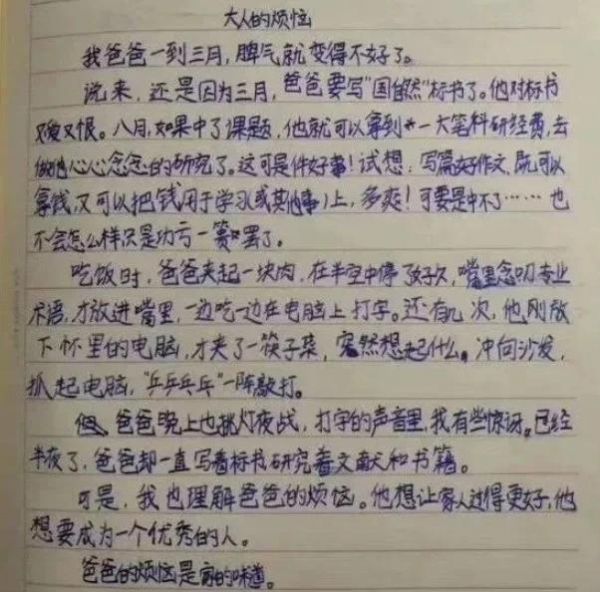 大人的烦恼
我爸爸一到三月，脾气就变得不好了。
说来，还是因为三月，爸爸要写"国自然"标书了。他对标书
又爱又恨。八月，如果中了课题，他就可以拿到一大笔科研经费，去
做他心心念念的研究了。这可是件好事！试想，写篇好作文，既可以
拿钱，又可以把钱用于学习（或其他事）上，多爽！可要是中不了……也
不会怎么样只是功亏一篑罢了。
吃饭时，爸爸夹起一块肉，在半空中停了好久，嘴里念叨专业
术语，才放进嘴里，一边吃一边在电脑上打字。还有几次，他刚放
下怀里的电脑，才夹了一筷子菜，突然想起什么。冲向沙发，
抓起电脑，"乒乒乓乓"一阵敲打。
爸爸晚上也挑灯夜战，打字的声音里，我有些惊讶。已经
半夜了，爸爸却一直写着标书研究着文献和书籍。
可是，我也理解爸爸的烦恼。他想让家人过得更好，他
想要成为一个优秀的人。
爸爸的烦恼是家的味道。